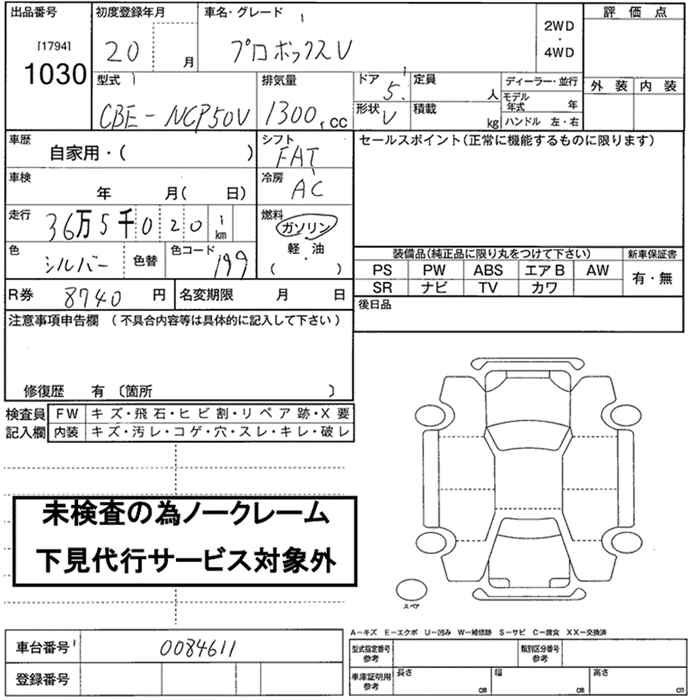 出品番号 初度登録年月 車名・グレード 評価点
[1794] 20 月 プロボックスV 2WD
・
1030 4WD
型式 排気量 ドア 定員 ディーラー・並行 外装 内装
CBE-NCP50V 1300 cc 5 人 モデル年式 年
形状 V 積載 kg ハンドル 左・右
車歴 自家用・( ) シフト FAT セールスポイント(正常に機能するものに限ります)
車検 年 月( 日) 冷房 AC
走行 36万5千020 km 燃料 ガソリン
軽・油
( )
色 シルバー 色替 色コード 199 装備品(純正品に限り丸をつけて下さい) 新車保証書
PS PW ABS エアB AW 有・無
SR ナビ TV カワ
R券 8740 円 名変期限 月 日 後日品
注意事項申告欄 (不具合内容等は具体的に記入して下さい)
修復歴 有 〔箇所 〕
検査員 FW キズ・飛石・ヒビ割・リペア跡・X要
記入欄 内装 キズ・汚レ・コゲ・穴・スレ・キレ・破レ
未検査の為ノークレーム
下見代行サービス対象外
スペア
A-キズ E-エクボ U-凹み W-補修跡 S-サビ C-腐食 XX-交換済
車台番号 0084611 型式指定番号 参考 類別区分番号 参考
登録番号 車庫証明用 参考 長さ cm 幅 cm 高さ cm